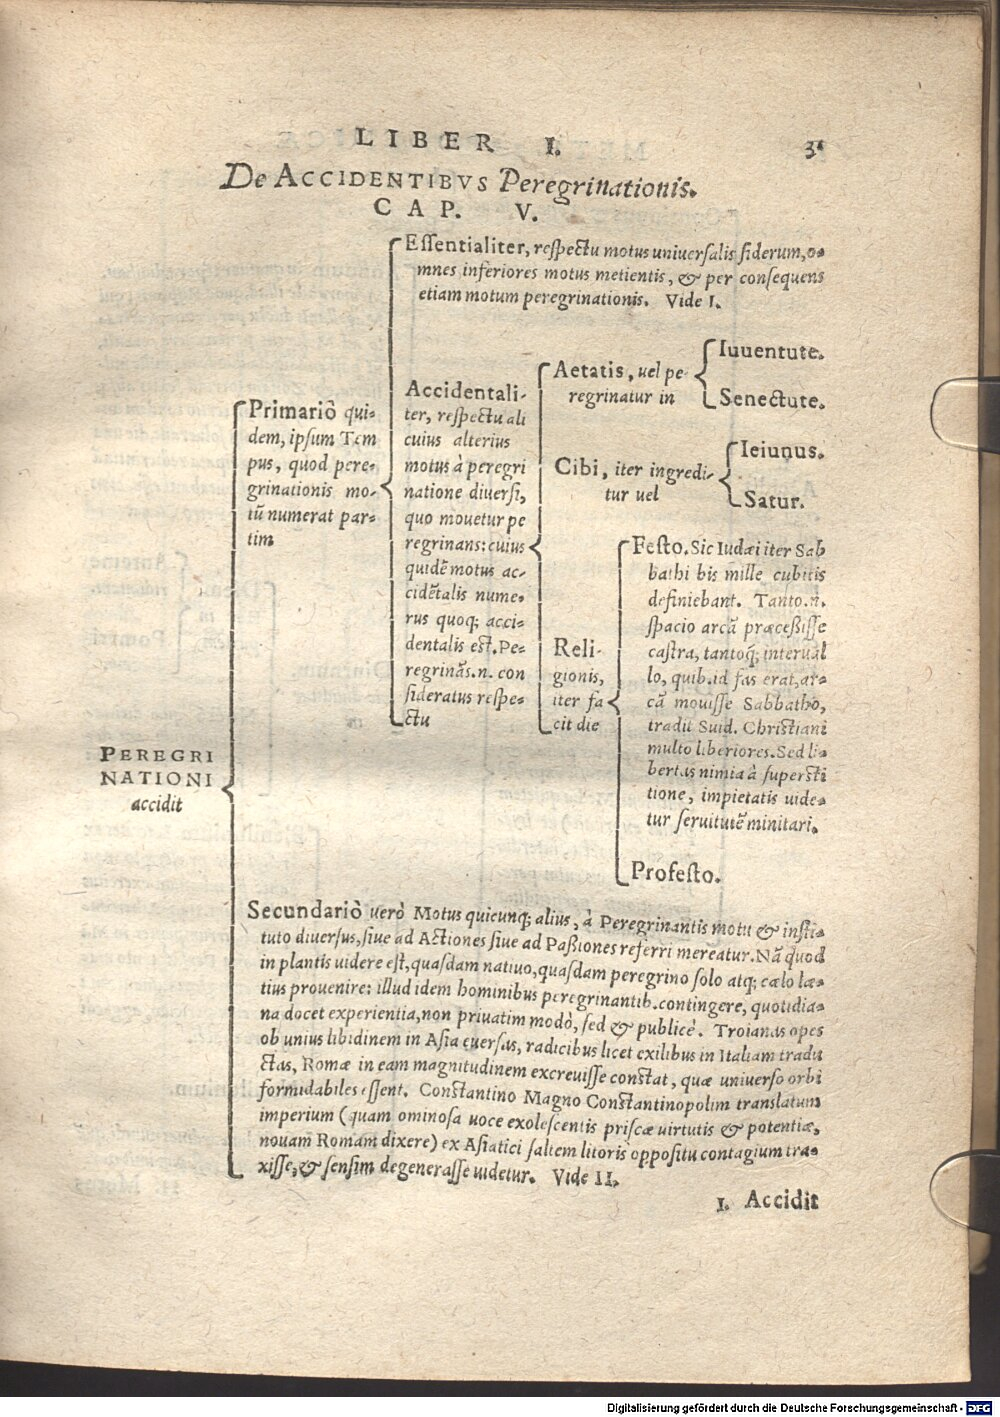 LIBER I. 31
De ACCIDENTIBVS Peregrinationis.
CAP. V.
PEREGRI
NATIONI
accidit
Primariò qui-
dem, ipsum Tem
pus, quod pere-
grinationis mo-
tū numerat par-
tim
Essentialiter, respectu motus universalis siderum, o-
mnes inferiores motus metientis, & per consequens
etiam motum peregrinationis. Vide I.
Accidentali-
ter, respectu ali
cuius alterius
motus à peregri
natione diversi,
quo mouetur pe
regrinans: cuius
quidē motus ac-
cidētalis nume-
rus quoq; acci-
dentalis est. Pe-
regrinās.n. con
sideratus respe-
ctu
Aetatis, uel pe-
regrinatur in
Iuuentute.
Senectute.
Cibi, iter ingredi-
tur uel
Ieiunus.
Satur.
Reli-
gionis,
iter fa
cit die
Festo. Sic Iudæi iter Sab
bathi bis mille cubitis
definiebant. Tanto.n.
spacio arcā præceßisse
castra, tantoq; interual
lo, quib. id fas erat, ar-
cā mouisse Sabbatho,
tradit Suid. Christiani
multo liberiores. Sed li-
bertas nimia à supersti
tione, impietatis uide-
tur seruitutē minitari.
Profesto.
Secundariò uerò Motus quicunq; alius, à Peregrinantis motu & insti-
tuto diuersus, siue ad Actiones siue ad Paßiones referri mereatur. Nā quod
in plantis uidere est, quasdam natiuo, quasdam peregrino solo atq; cælo læ-
tius prouenire: illud idem hominibus peregrinantib. contingere, quotidia-
na docet experientia, non priuatim modò, sed & publicè. Troianas opes
ob unius libidinem in Asia euersas, radicibus licet exilibus in Italiam tradu
ctas, Romæ in eam magnitudinem excreuisse constat, quæ uniuerso orbi
formidabiles essent. Constantino Magno Constantinopolim translatum
imperium (quam ominosa uoce exolescentis priscæ uirtutis & potentiæ,
nouam Romam dixere) ex Asiatici saltem litoris oppositu contagium tra-
xisse, & sensim degenerasse uidetur. Vide II.
I. Accidit
Digitalisierung gefördert durch die Deutsche Forschungsgemeinschaft - DFG